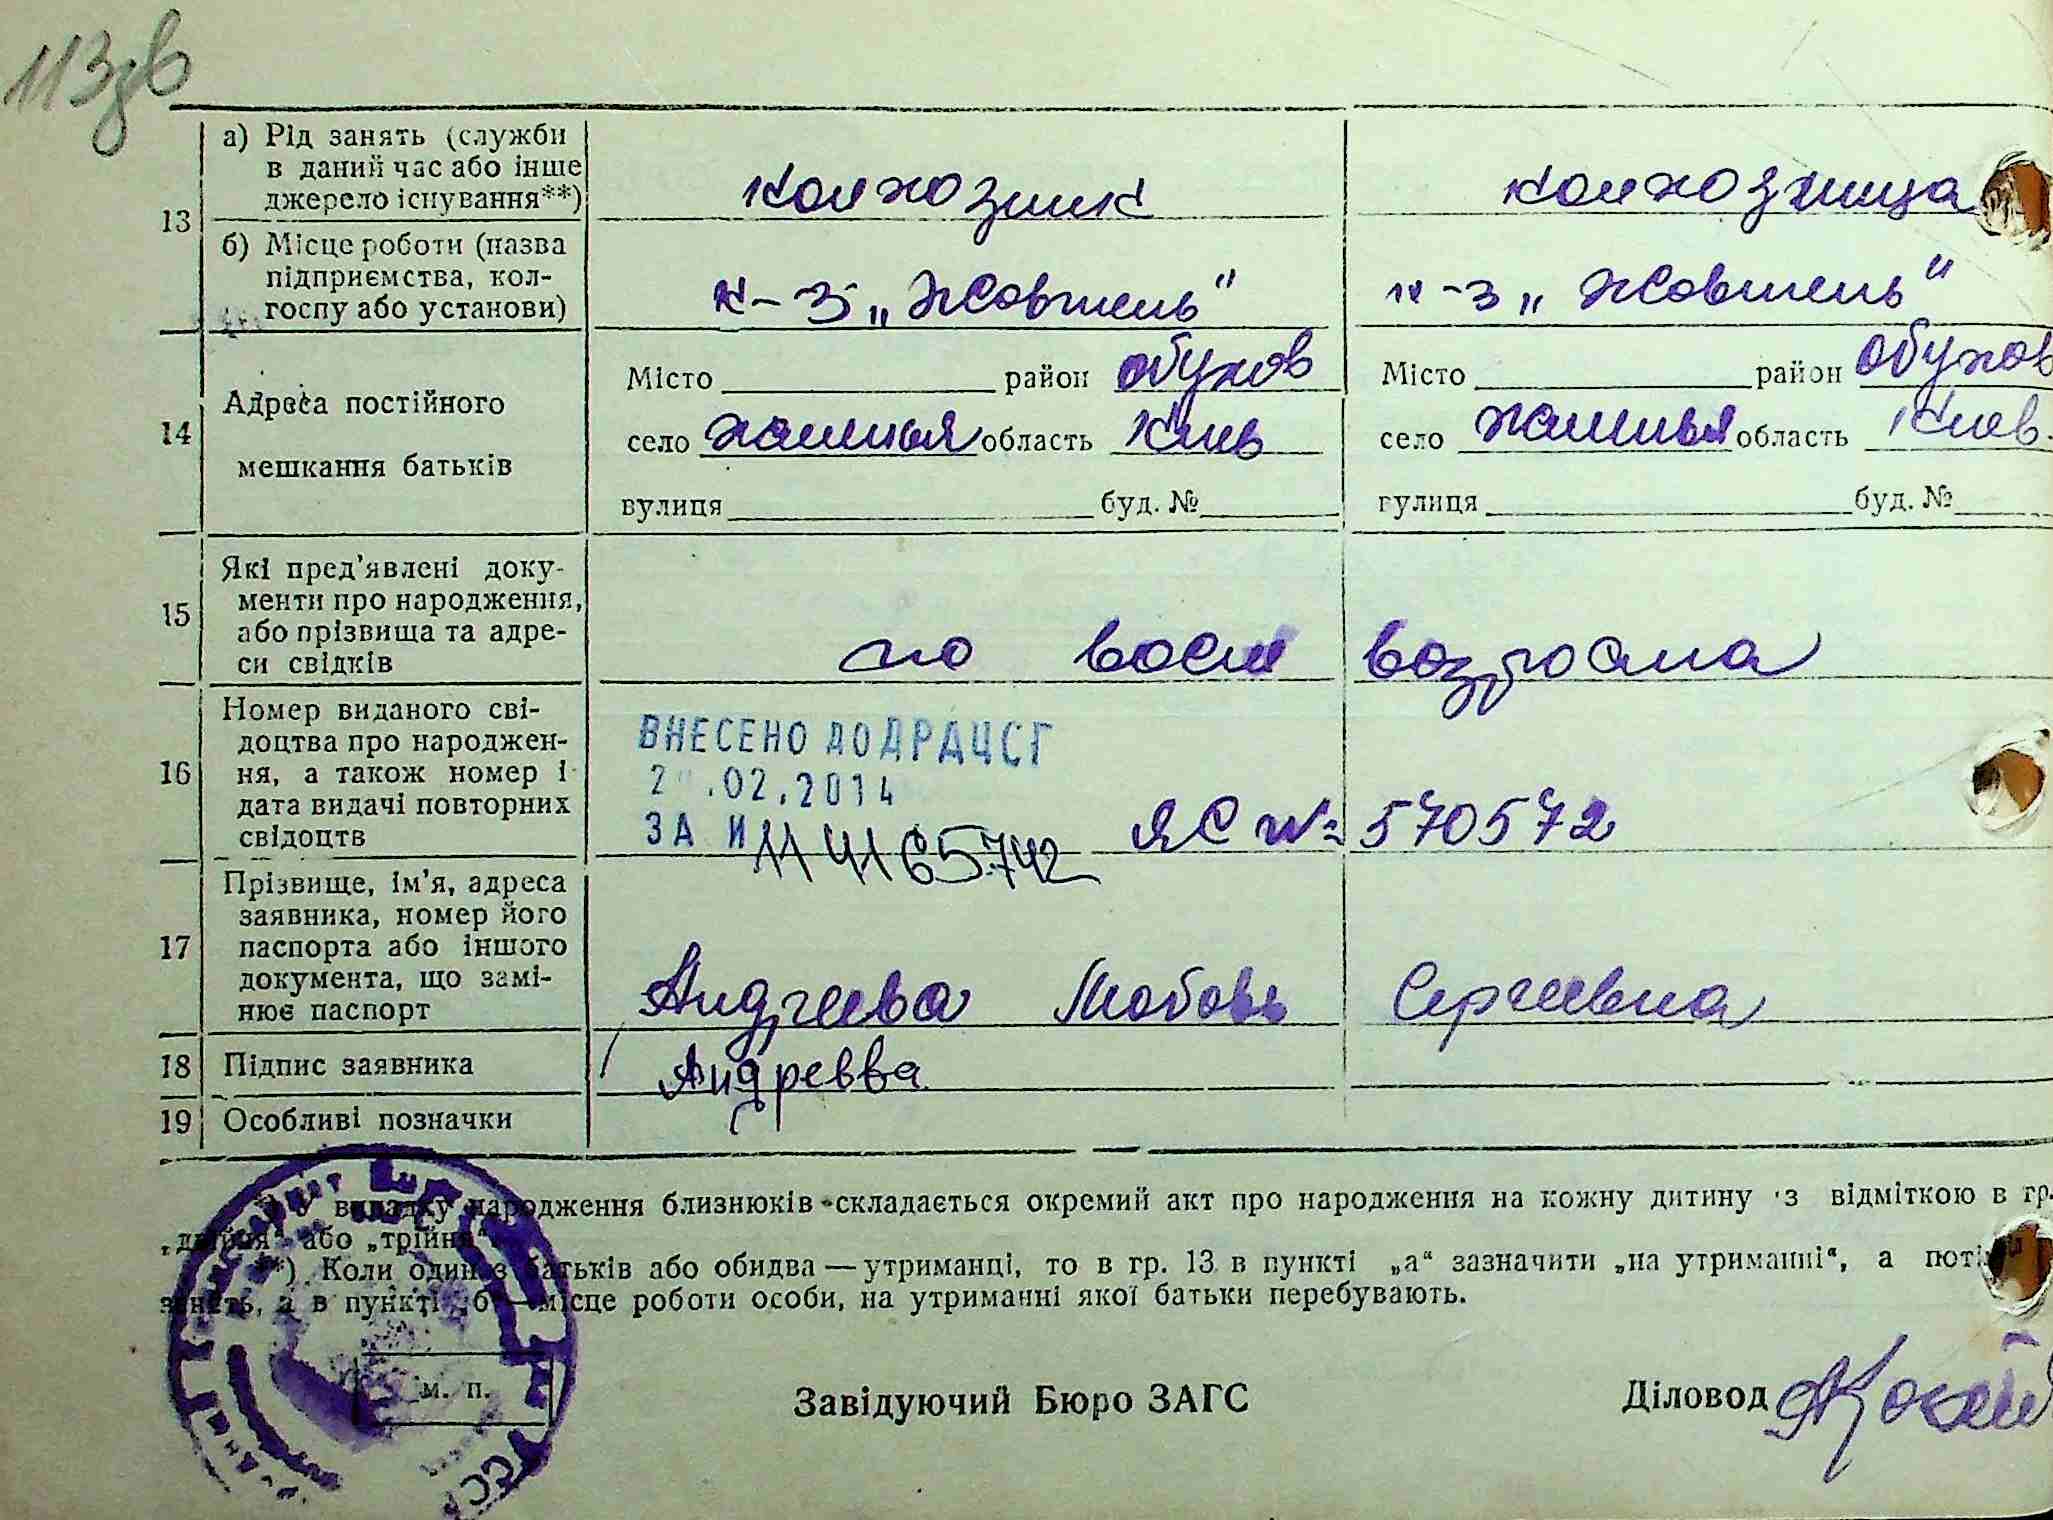 113зв
а) Рід занять (служби в даний час або інше джерело існування**) колхозник колхозница
13
б) Місце роботи (назва підприємства, кол-госпу або установи) к-з „Жовтень" к-з „Жовтень"
14 Адреса постійного мешкання батьків
Місто район Обухов Місто район Обухов
село область Киев село область Киев.
вулиця буд. № вулиця буд. №
15 Які пред’явлені доку-
менти про народження,
або прізвища та адре-
си свідків по восп возроста
16 Номер виданого сві-
доцтва про народжен-
ня, а також номер і
дата видачі повторних
свідоцтв
ВНЕСЕНО ДО ДРАЦСГ
.02.2014
ЗА N ЯС № 570572
17 Прізвище, ім’я, адреса
заявника, номер його
паспорта або іншого
документа, що замі-
нює паспорт Андреева Любовь Сергеевна
18 Підпис заявника Андреева
19 Особливі позначки
У випадку народження близнюків складається окремий акт про народження на кожну дитину з відміткою в гр.
„двійня“ або „трійня“.
**) Коли один з батьків або обидва — утриманці, то в гр. 13 в пункті „а“ зазначити „на утриманні“, а потім
занять, а в пункті „б“ — місце роботи особи, на утриманні якої батьки перебувають.
м. п.
Завідуючий Бюро ЗАГС Діловод